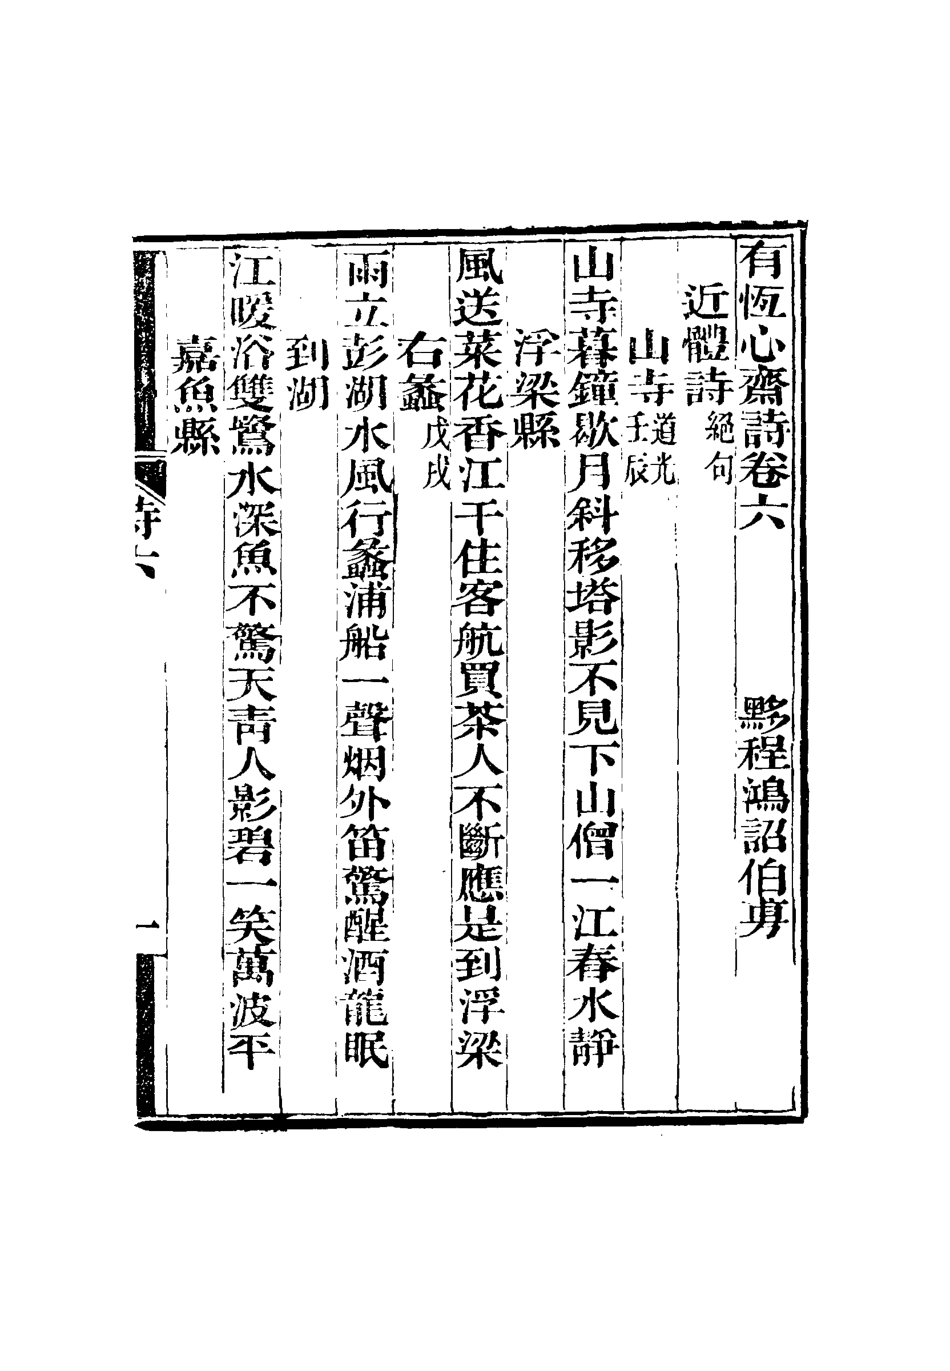 有恆心齋詩卷六　黟程鴻詔伯旉
近體詩 絕句
山寺 道光壬辰
山寺暮鐘歇月斜移塔影不見下山僧一江春水靜
浮梁縣
風送菜花香江干住客航買茶人不斷應是到浮梁
右蠡 戊戌
雨立彭湖水風行蠡浦船一聲烟外笛驚醒酒龍眠
到湖
江暖浴雙鷺水深魚不驚天青人影碧一笑萬波平
嘉魚縣
詩六
一